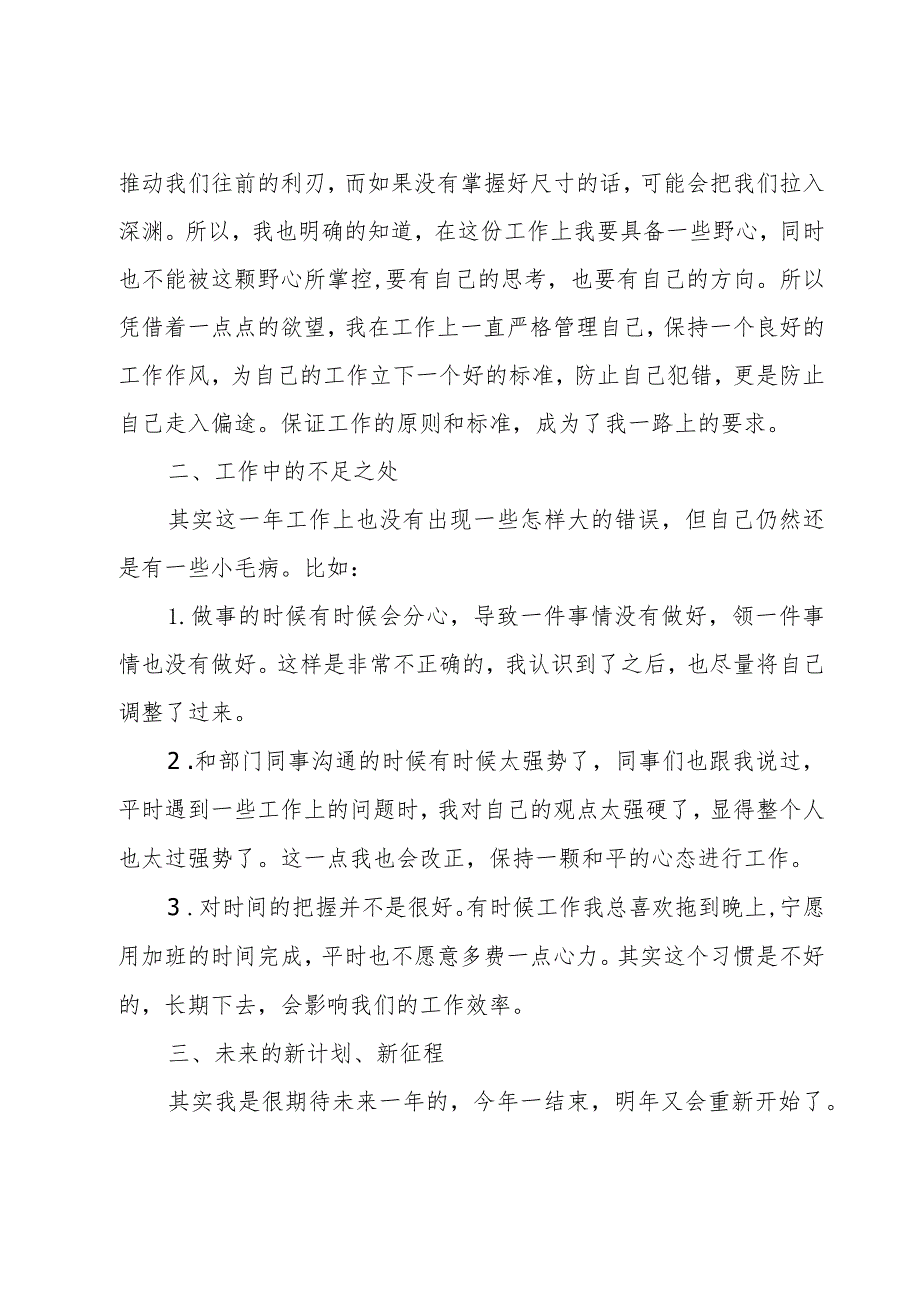 推动我们往前的利刃，而如果没有掌握好尺寸的话，可能会把我们拉入
深渊。所以，我也明确的知道，在这份工作上我要具备一些野心，同时
也不能被这颗野心所掌控,要有自己的思考，也要有自己的方向。所以
凭借着一点点的欲望，我在工作上一直严格管理自己，保持一个良好的
工作作风，为自己的工作立下一个好的标准，防止自己犯错，更是防止
自己走入偏途。保证工作的原则和标准，成为了我一路上的要求。
二、工作中的不足之处
其实这一年工作上也没有出现一些怎样大的错误，但自己仍然还
是有一些小毛病。比如：
1.做事的时候有时候会分心，导致一件事情没有做好，领一件事
情也没有做好。这样是非常不正确的，我认识到了之后，也尽量将自己
调整了过来。
2.和部门同事沟通的时候有时候太强势了，同事们也跟我说过，
平时遇到一些工作上的问题时，我对自己的观点太强硬了，显得整个人
也太过强势了。这一点我也会改正，保持一颗和平的心态进行工作。
3.对时间的把握并不是很好。有时候工作我总喜欢拖到晚上,宁愿
用加班的时间完成，平时也不愿意多费一点心力。其实这个习惯是不好
的，长期下去，会影响我们的工作效率。
三、未来的新计划、新征程
其实我是很期待未来一年的，今年一结束，明年又会重新开始了。